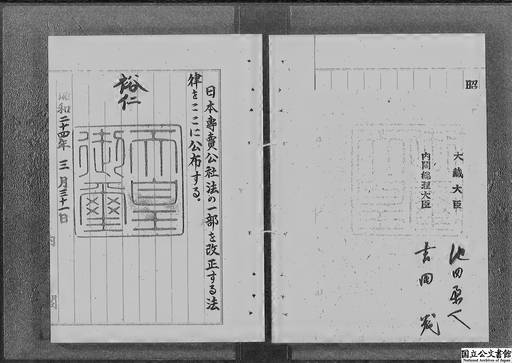 日本專賣公社法の一部を改正する法
律をここに公布する。
裕仁
天皇
御璽
昭和二十四年三月三十一日
内閣
大藏大臣
池田勇人
内閣総理大臣
吉田茂
昭
国立公文書館
National Archives of Japan